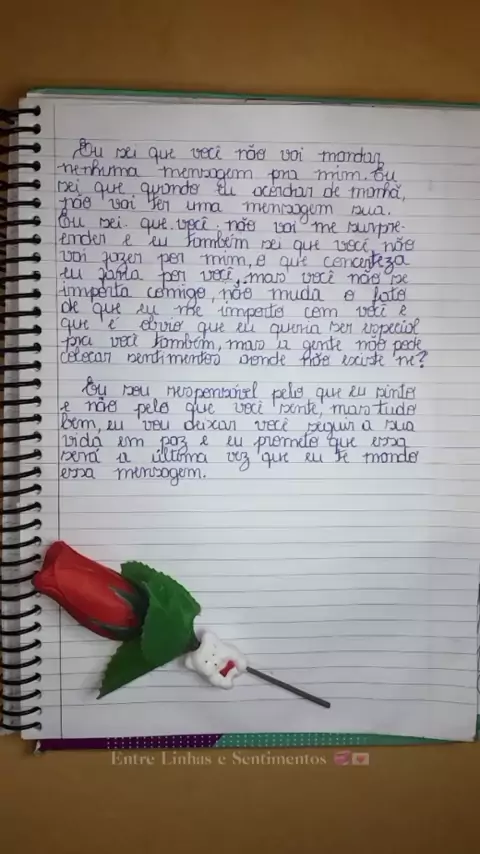 Eu sei que você não vai mandar
nenhuma mensagem pra mim. Eu
sei que quando eu acordar de manhã,
não vai ter uma mensagem sua.
Eu sei que você não vai me surpre-
ender e eu também sei que você, não
vai fazer por mim, o que concerteza
eu faria por você, mas você não se
importa comigo, não muda o fato
de que eu me importo com você e
que é obvio que eu queria ser especial
pra você também, mas a gente não pode
colocar sentimentos aonde não existe né?
Eu sou responsável pelo que eu sinto
e não pelo que você sente, mas tudo
bem, eu vou deixar você seguir a sua
vida em paz e eu prometo que essa
será a última vez que eu te mando
essa mensagem.
Entre Linhas e Sentimentos